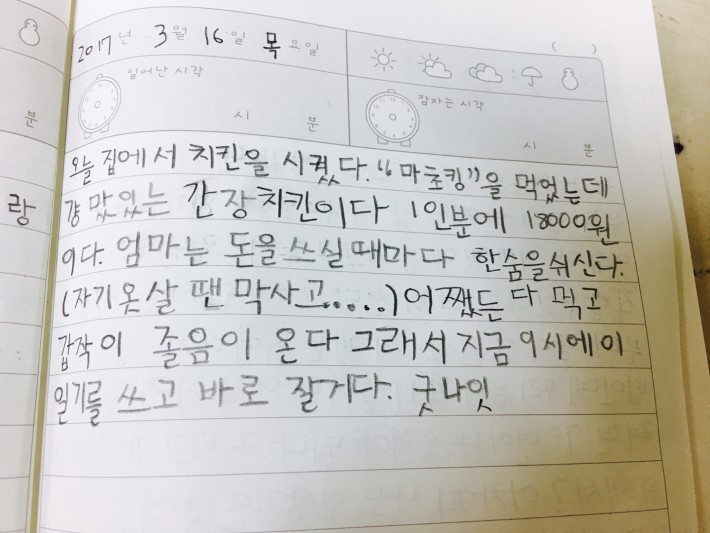 2017년 3월 16일 목요일 ( )
일어난 시각
시 분
잠자는 시각
시 분
오늘 집에서 치킨을 시켰다. "마쵸킹"을 먹었는데
걍 맛있는 간장치킨이다 1인분에 18000원
이다. 엄마는 돈을 쓰실때마다 한숨을쉬신다.
(자기옷살 땐 막사고.....)어쨌든 다 먹고
갑작이 졸음이 온다 그래서 지금 9시에이
일기를 쓰고 바로 잘거다. 굿나잇
분
랑